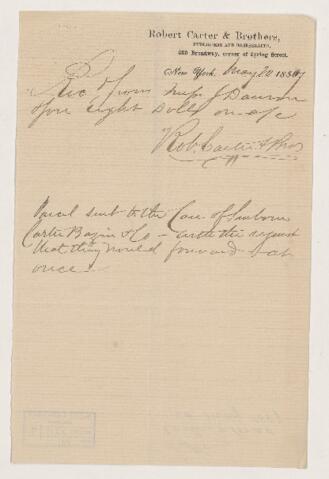 Robert Carter & Brothers,
PUBLISHERS AND BOOKSELLERS,
530 Broadway, corner of Spring Street.
New York, May 20 1857
Rec'd from J Dawson
eight Dolls on a/c
Rob Carter & Bros
Parcel sent to the Care of Sanborn
Carter Bazin & Co - with the request
that they would forward at
once